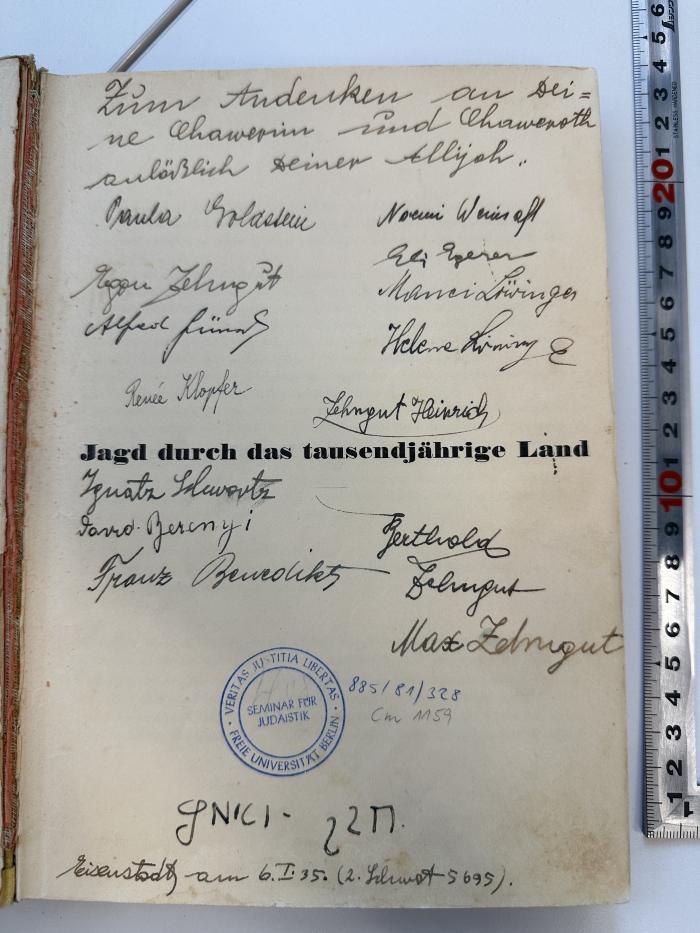 Zum Andenken an Dei=
ne Chawerim und Chaweroth
anläßlich Deiner Allijah.
Paula Goldstein
Noemi
Egon Zehngut
Manci Löwinger
Alfred
Helene
Renée Klopfer
Zehngut Heinrich
Jagd durch das tausendjährige Land
Ignatz Schwartz
David Berenyi
Berthold
Zehngut
Franz Benedikt
Max Zehngut
VERITAS JUSTITIA LIBERTAS
SEMINAR FÜR
JUDAISTIK
FREIE UNIVERSITÄT BERLIN
885/81/328
Cm 1159
Eisenstadt, am 6.I.35. (2. Schwat 5695).
1 2 3 4 5 6 7 8 9 10 1 2 3 4 5 6 7 8 9 20 1 2 3 4 5 6